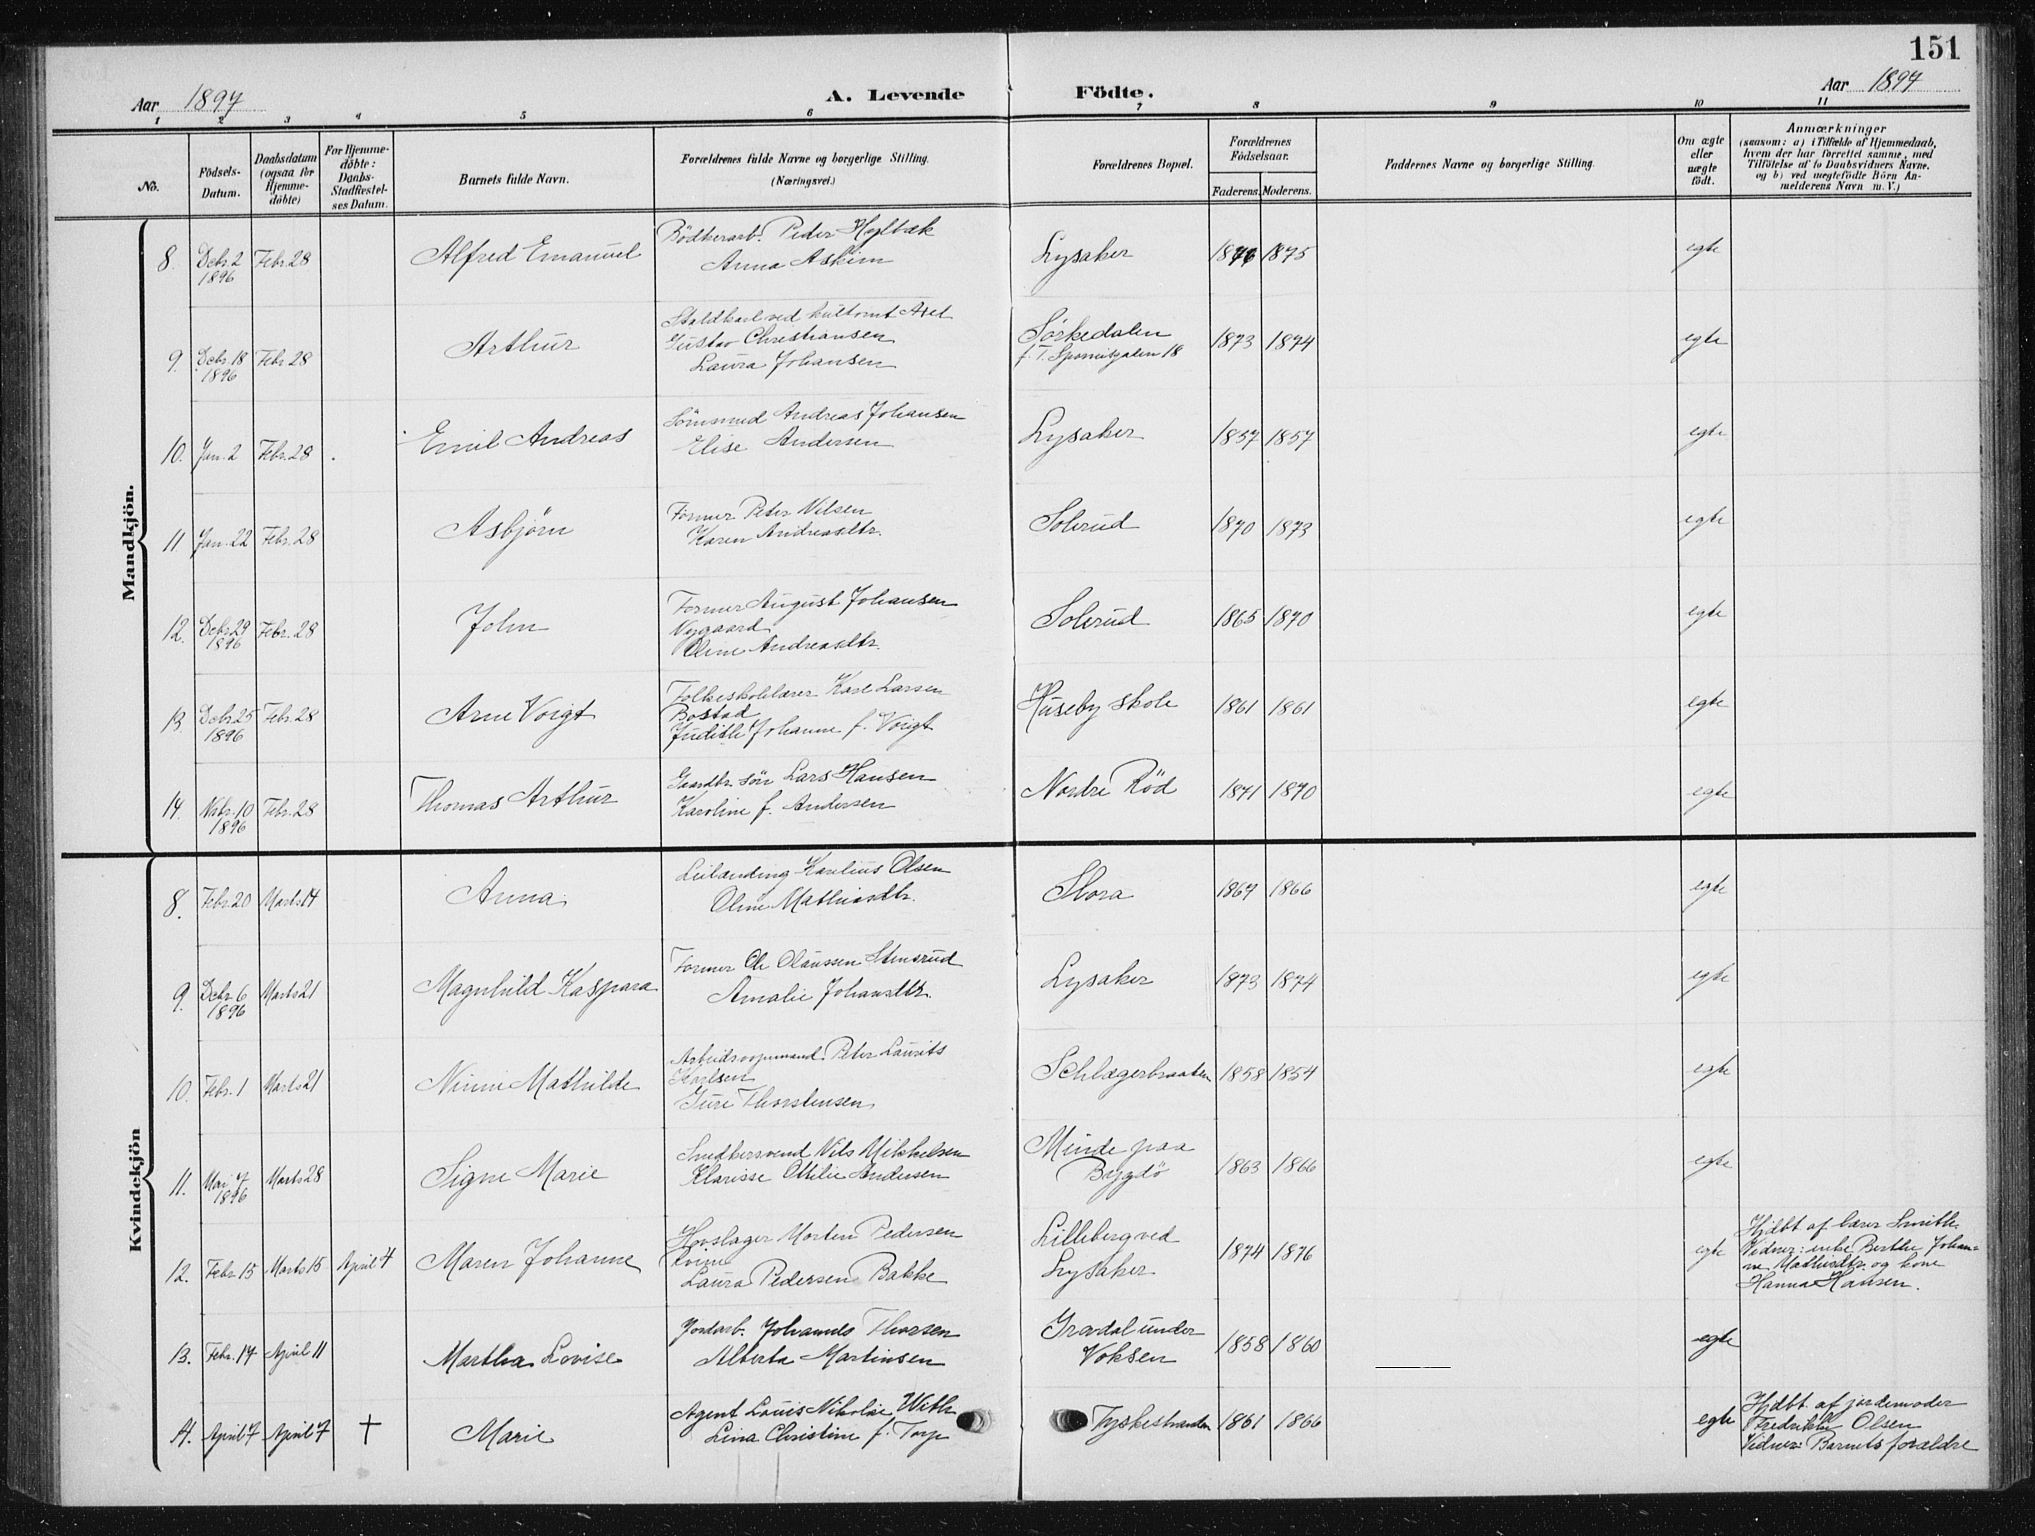 151
Aar 1897
A. Levende
Födte.
Aar 1897
1 2 3 4 5 6 7 8 9 10 11
No.
Födsels-Datum.
Daabsdatum (ogsaa for Hjemme-döbte)
For Hjemme-döbte: Daabs-Stadfæstel-ses Datum.
Barnets fulde Navn.
Forældrenes fulde Navne og borgerlige Stilling.
(Næringsvei.)
Forældrenes Bopæl.
Forældrenes Födselsaar.
Faderens. Moderens.
Faddernes Navne og borgerlige Stilling.
Om ægte eller uægte födt.
Anmærkninger
(saasom: a) i Tilfælde af Hjemmedaab,
hvem der har forrettet samme, med
Tilföielse af to Daabsvidners Navne.
og b) ved uægtefödte Börn An-
melderens Navn m. V.)
Mandkjön.
8. Debr. 2 1896 Febr. 28 Alfred Emanuel
Bödkerarb. Peder Hylbak
Anna Askim
Lysaker 1875 egte
9. Debr. 18 1896 Febr. 28 Arthur
Staldkarl ved Axel
Gustav Christiansen
Laura Johansen
Sörkedalen
f. T. 18
1873 1874 egte
10. Jan. 2 Febr. 28 Emil Andreas
Sömsmed Andreas Johansen
Elise Andersen
Lysaker 1857 1857 egte
11 Jan. 22 Febr. 28 Asbjörn
Former Peter Nilsen
Karen Andreasdtr.
Solerud 1870 1873 egte
12. Debr. 29 1896 Febr. 28 John
Former August Johansen
Nygaard
Oline Andreasdtr.
Solerud 1865 1870 egte
13. Debr. 25 1896 Febr. 28 Arne Voigt
Folkeskolelærer Karl Larsen
Bostad
Judithe Johanne f. Voigt
Huseby skole 1861 1861 egte
14. Nvbr. 10 1896 Febr. 28 Thomas Arthur
Gaardbr. sön Lars Hansen
Karoline f. Andersen
Nordre Röd 1871 1870 egte
Kvindekjön
8. Febr. 20 Marts 14 Anna
Leilænding Karelius Olsen
Oline Mathiasdtr.
Slora 1867 1866 egte
9. Debr. 6 1896 Marts 21 Magnhild Kaspara
Former Ole Olaussen Stensrud
Amalie Johansdtr.
Lysaker 1873 1874 egte
10. Febr. 1 Marts 21 Ninni Mathilde
Arbeidsopmand Peter Laurits
Karlsen
Guri Thorstensen
Schlægerbraaten 1858 1854 egte
11. Mai 7 1896 Marts 28 Signe Marie
Smedkersvend Nils Mikkelsen
Klarisse Otilie Andersen
Minde paa
Bygdö
1863 1866 egte
12. Febr. 15 Marts 15 April 4 Maren Johanne
Hovslager Morten Pedersen
Laura Pedersen Bakke
Lilleberg ved
Lysaker
1874 1876 egte
Hjdbt af lærer Smith.
Vidner: enke Berthe Johan-
ne Mathisdtr. og kone
Hanna Hansen.
13. Febr. 14 April 11 Martha Lovise
Jordarb. Johannes Thorsen
Alberta Martinsen
Gravdal under
Voksen
1858 1860 egte
14. April 7 April 7 † Marie
Agent Louis Nikolai With
Lina Christine f. Torp
Tyskestranden 1861 1866 egte
Hjdbt af jordemoder
Fredrikke Olsen
Vidner: Barnets forældre